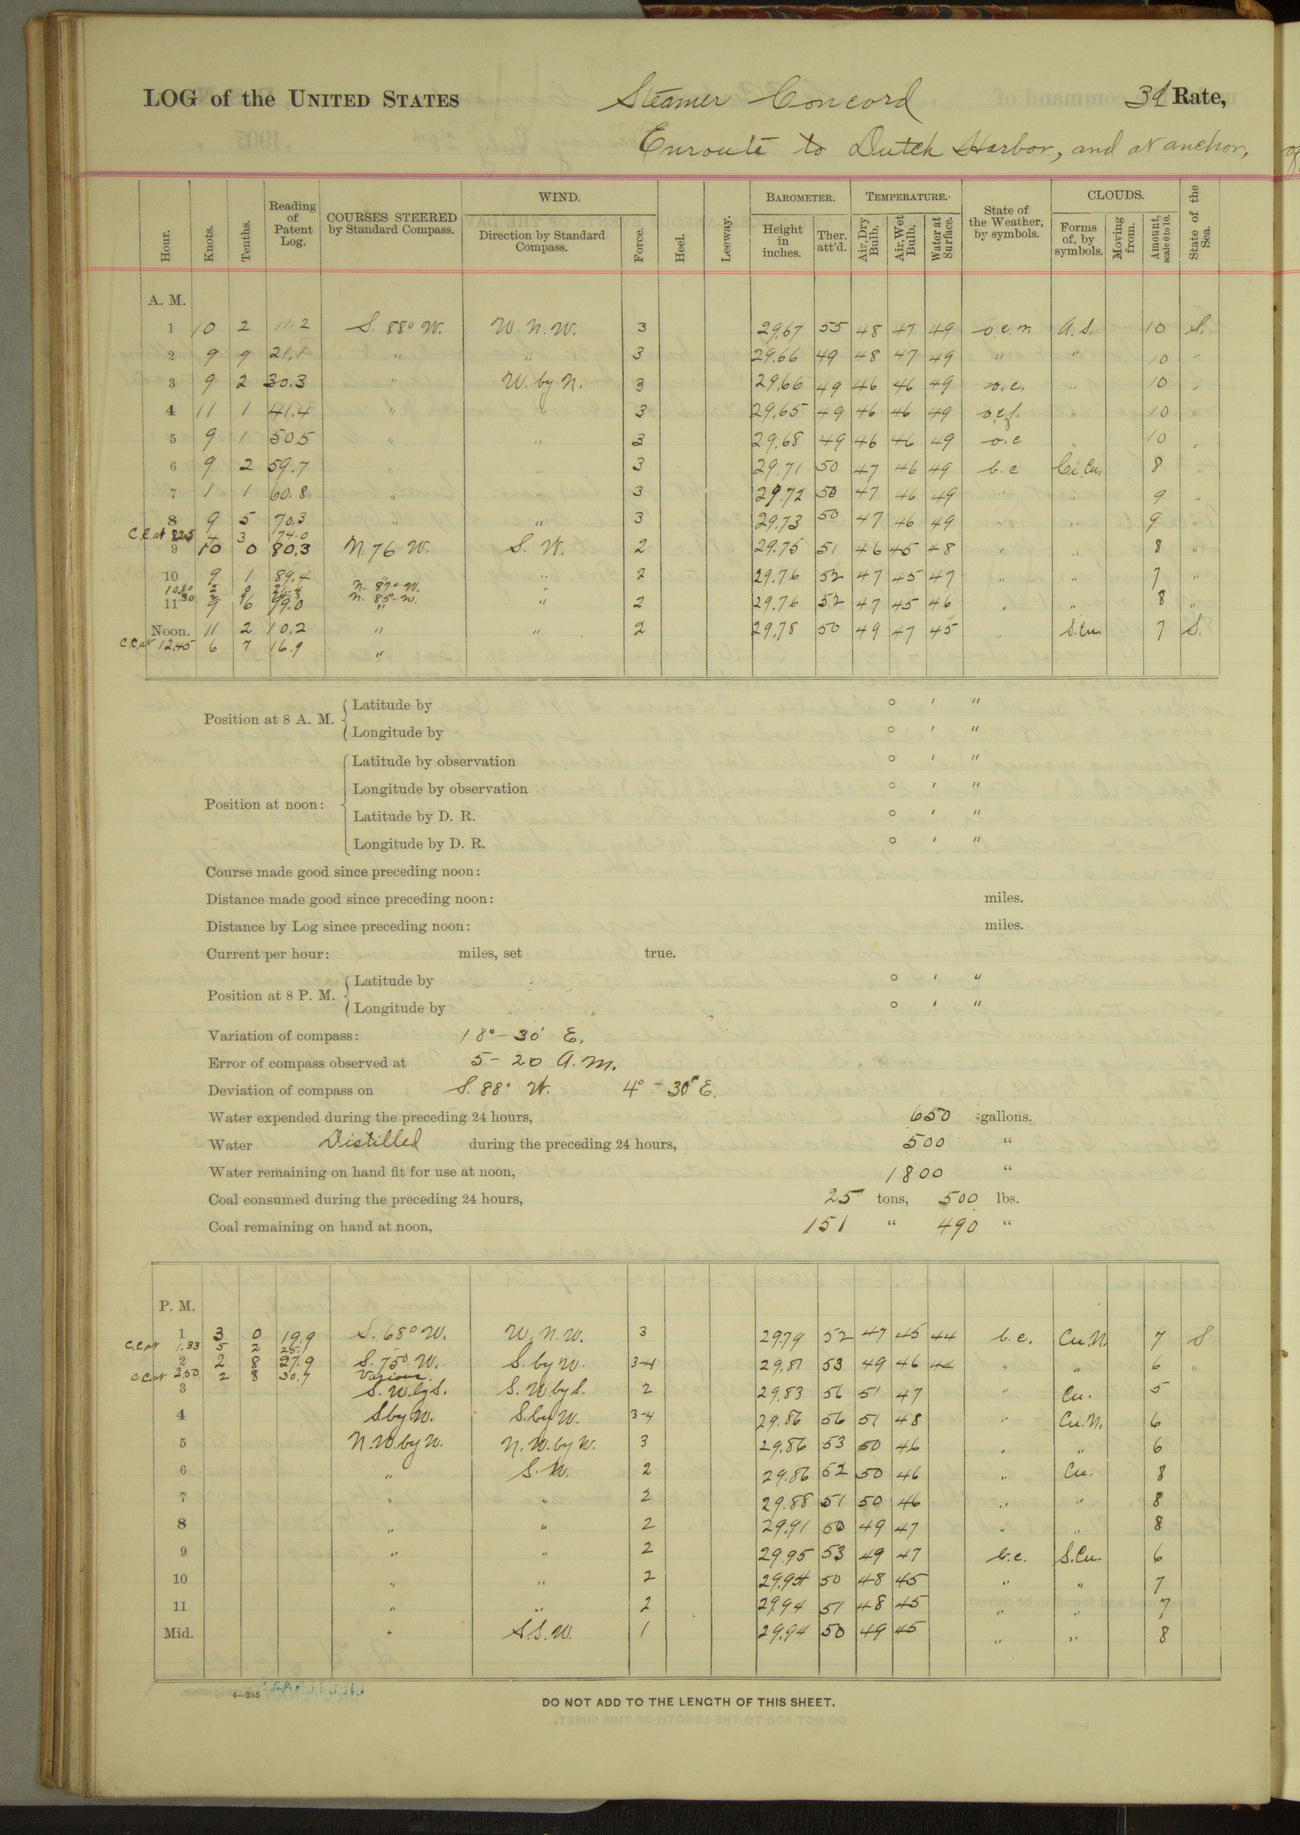 LOG of the UNITED STATES Steamer Concord 3d Rate,
Enroute to Dutch Harbor, and at anchor,
Hour. Knots. Tenths. Reading of Patent Log. COURSES STEERED by Standard Compass. WIND. Direction by Standard Compass. Force. Heel. Leeway. BAROMETER. Height in inches. Ther. att'd. TEMPERATURE. Air, Dry Bulb. Air, Wet Bulb. Water at Surface. State of the Weather, by symbols. CLOUDS. Forms of, by symbols. Moving from. Amount, scale 0 to 10. State of the Sea.
A. M.
1 10 2 11.2 S. 88° W. W. N. W. 3 29.67 55 48 47 49 o.c.m A.S. 10 S.
2 9 9 21.1 " " 3 29.66 49 48 47 49 " " 10 "
3 9 2 30.3 " W. by N. 3 29.66 49 46 46 49 o.c. " 10 "
4 11 1 41.4 " " 3 29.65 49 46 46 49 o.c.f. " 10 "
5 9 1 50.5 " " 3 29.68 49 46 46 49 o.c " 10 "
6 9 2 59.7 " " 3 29.71 50 47 46 49 b.c Ci.Cu. 8 "
7 1 1 60.8 " " 3 29.72 50 47 46 49 " " 9 "
8 9 5 70.3 " " 3 29.73 50 47 46 49 " " 9 "
C.C. at 8.25 4 3 74.0
9 10 0 80.3 N. 76 W. S. W. 2 29.75 51 46 45 48 " " 8 "
10 9 1 89.4 " " 2 29.76 52 47 45 47 " " 7 "
N. 87° W.
N. 85° W.
11 9 6 99.0 " " 2 29.76 52 47 45 46 " " 8 "
Noon. 11 2 10.2 " " 2 29.78 50 49 47 45 " S.Cu. 7 S.
C.C. at 12.45 6 7 16.9 "
Position at 8 A. M. Latitude by ° ′ ″
Longitude by ° ′ ″
Position at noon: Latitude by observation ° ′ ″
Longitude by observation ° ′ ″
Latitude by D. R. ° ′ ″
Longitude by D. R. ° ′ ″
Course made good since preceding noon:
Distance made good since preceding noon: miles.
Distance by Log since preceding noon: miles.
Current per hour: miles, set true.
Position at 8 P. M. Latitude by ° ′ ″
Longitude by ° ′ ″
Variation of compass: 18° - 30' E.
Error of compass observed at 5 - 20 A.M.
Deviation of compass on S. 88° W. 4° - 30' E.
Water expended during the preceding 24 hours, 650 gallons.
Water Distilled during the preceding 24 hours, 500 "
Water remaining on hand fit for use at noon, 1800 "
Coal consumed during the preceding 24 hours, 25 tons, 500 lbs.
Coal remaining on hand at noon, 151 " 490 "
P. M.
1 3 0 19.9 S. 68° W. W. N. W. 3 29.79 52 47 45 44 b.c. Cu.N. 7 S
C.C. at 1.33 5 2 25.1
2 2 8 27.9 S. 75° W. S. by W. 3-4 29.81 53 49 46 44 " " 6 "
C.C. at 2.50 2 8 30.7 Various
3 S. W. by S. S. W. by S. 2 29.83 56 51 47 " Cu. 5
4 S by W. S. by W. 3-4 29.86 56 51 48 " Cu.N. 6
5 N. W. by W. N. W. by W. 3 29.86 53 50 46 " " 6
6 " S. W. 2 29.86 52 50 46 " Cu. 8
7 " " 2 29.88 51 50 46 " " 8
8 " " 2 29.91 50 49 47 " " 8
9 " " 2 29.95 53 49 47 b.c. S.Cu. 6
10 " " 2 29.94 50 48 45 " " 7
11 " " 2 29.94 51 48 45 " " 7
Mid. " S.S.W. 1 29.94 50 49 45 " " 8
4—205
DO NOT ADD TO THE LENGTH OF THIS SHEET.